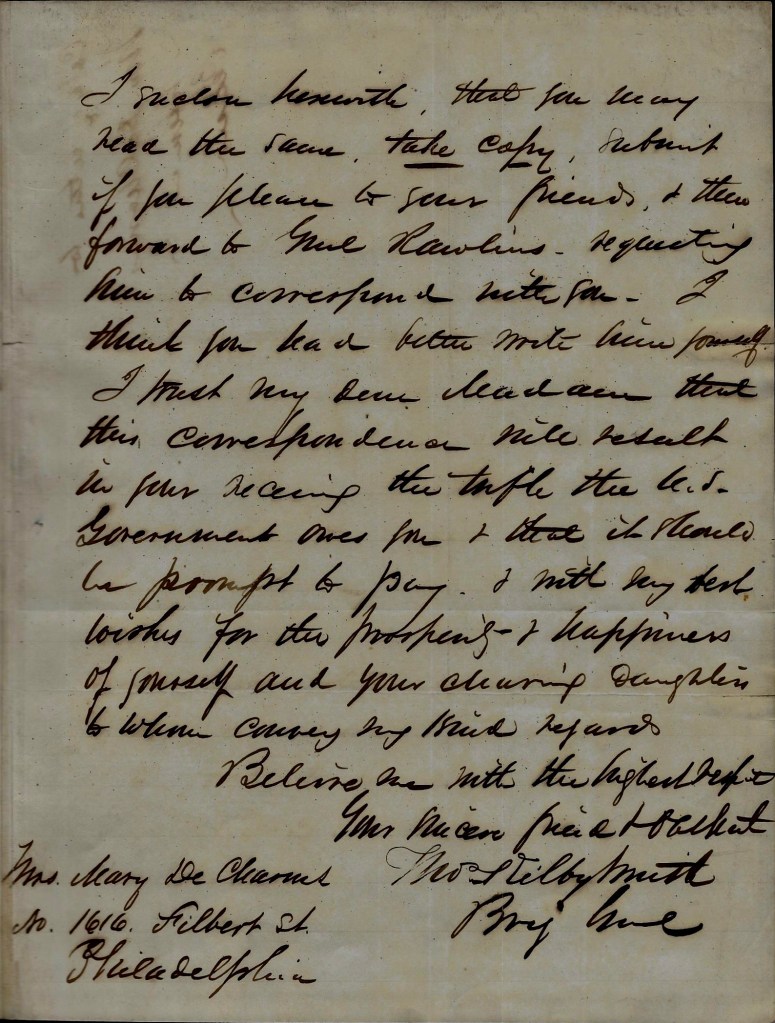 I enclose herewith, that you may
read the same, take copy, submit
if you please to your friends, & then
forward to Genl Rawlins - requesting
him to correspond with you - I
think you had better write him yourself.
I trust my dear Madam that
this correspondence will result
in your receiving the trifle the U.S.
Government owes you & that it should
be prompt to pay. & with my best
wishes for the prosperity & happiness
of yourself and your charming Daughters
to whom convey my kind regards
Believe me with the highest respect
Your sincere friend & Obt Servt
Thos Kilby Smith
Brig Genl
Mrs. Mary De Charms
No. 1616. Filbert St.
Philadelphia